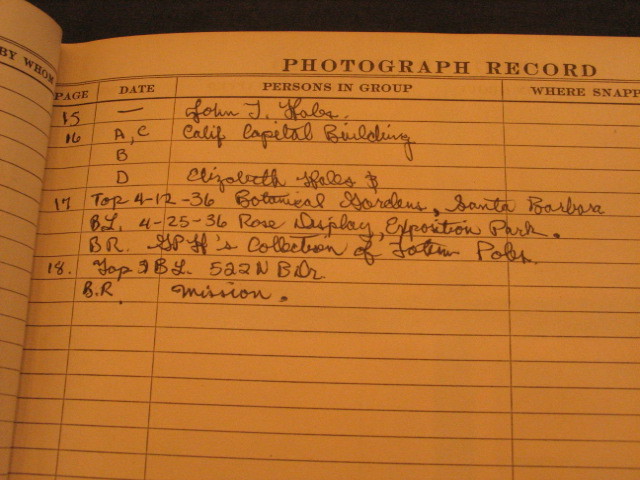 BY WHOM
PHOTOGRAPH RECORD
PAGE DATE PERSONS IN GROUP WHERE SNAPP
15 — John T. Hales.
16 A, C Calif Capital Building
B
D Elizabeth Hales &
17 Top 4-12-36 Botanical Gardens, Santa Barbara
B.L. 4-25-36 Rose Display, Exposition Park.
B.R. GPH's Collection of Totem Poles.
18. Top & B.L. 522 N B. Dr.
B.R. Mission.